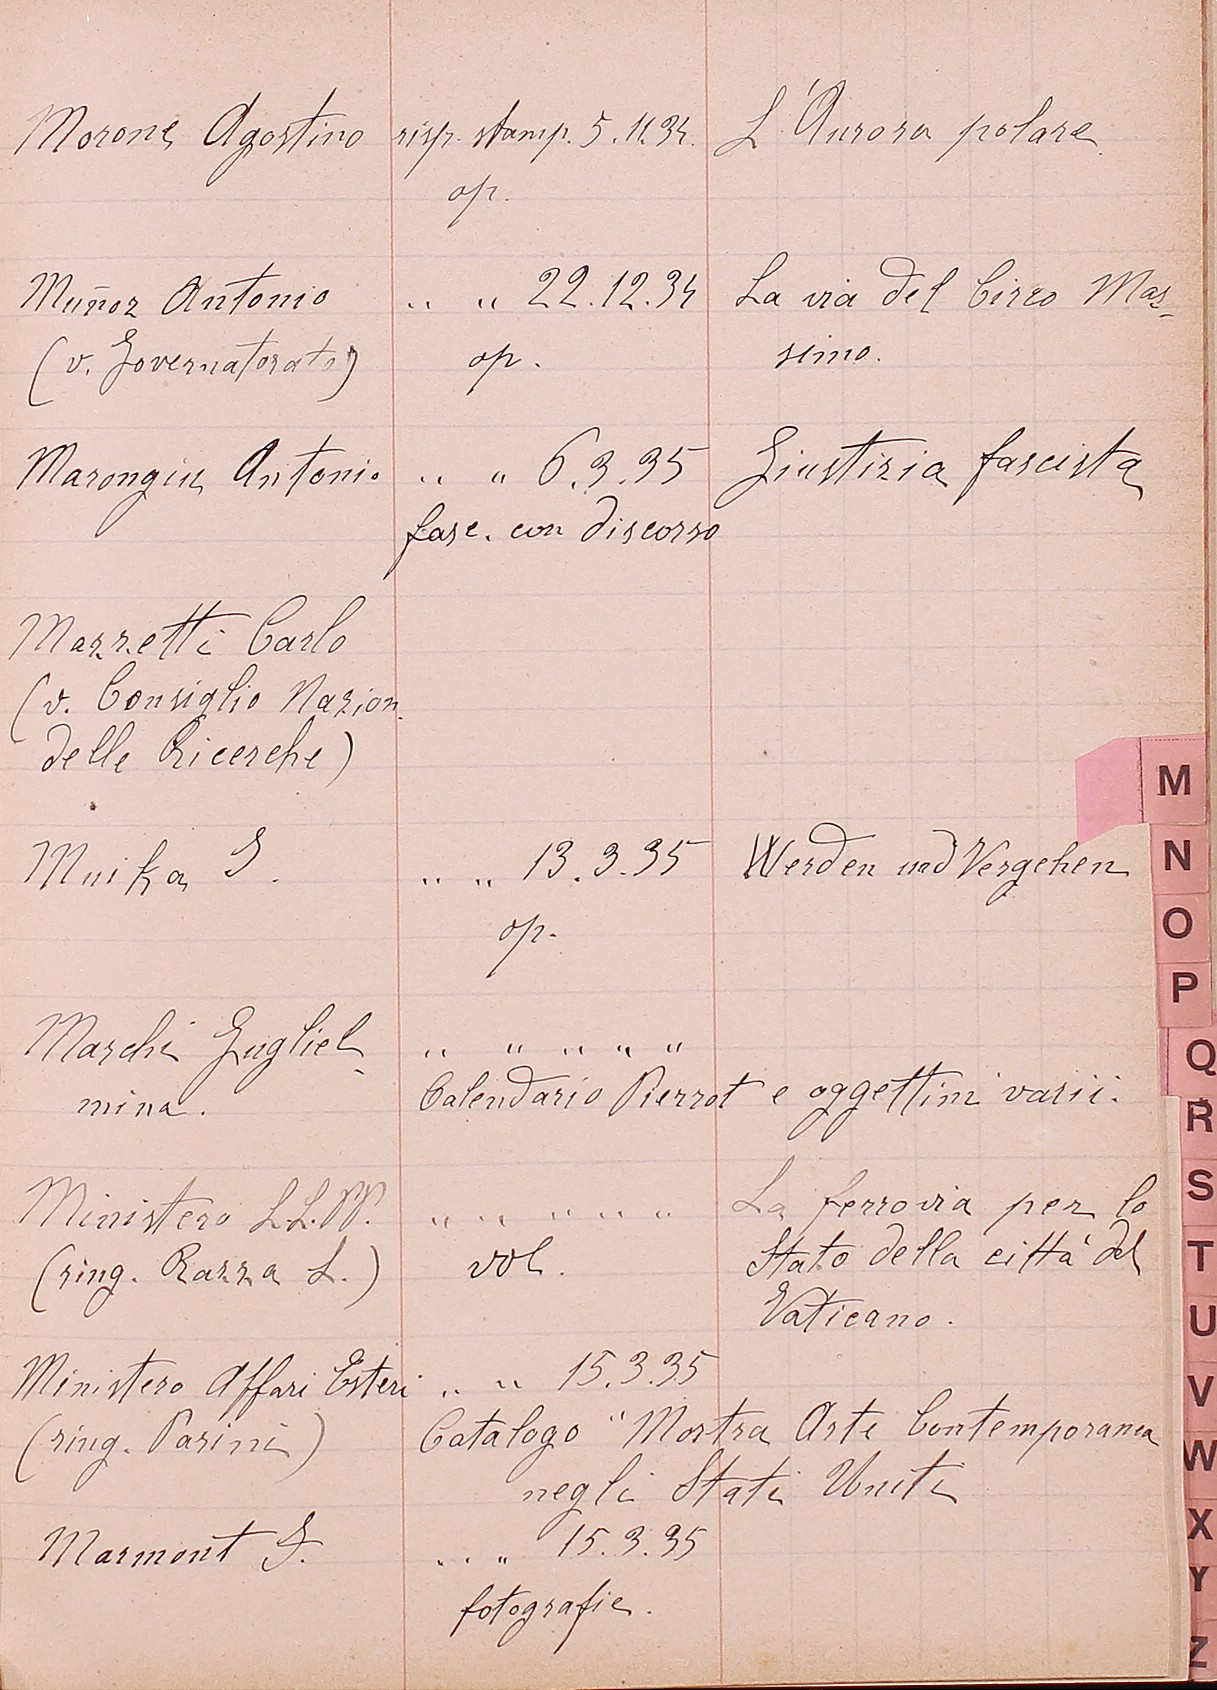 Morone Agostino risp. stamp. 5.11.34. L'Aurora polare
op.
Muñoz Antonio " " 22.12.34 La via del Circo Mas-
(v. Governatorato) op. simo.
Marongiu Antonio " " 6.3.35 Giustizia fascista
fasc. con discorso
Mazzetti Carlo
(v. Consiglio Nazion.
delle Ricerche)
Muika G. " " 13.3.35 Werden und Vergehen
op.
Marchi Gugliel- " " " " "
mina. Calendario Pierrot e oggettini varii.
Ministero LL.PP. " " " " " La ferrovia per lo
(ring. Razza L.) vol. Stato della città del
Vaticano.
Ministero Affari Esteri " " 15.3.35
(ring. Parini) Catalogo "Mostra Arte Contemporanea
negli Stati Uniti
Marmont " " 15.3.35
fotografie.
M
N
O
P
Q
R
S
T
U
V
W
X
Y
Z